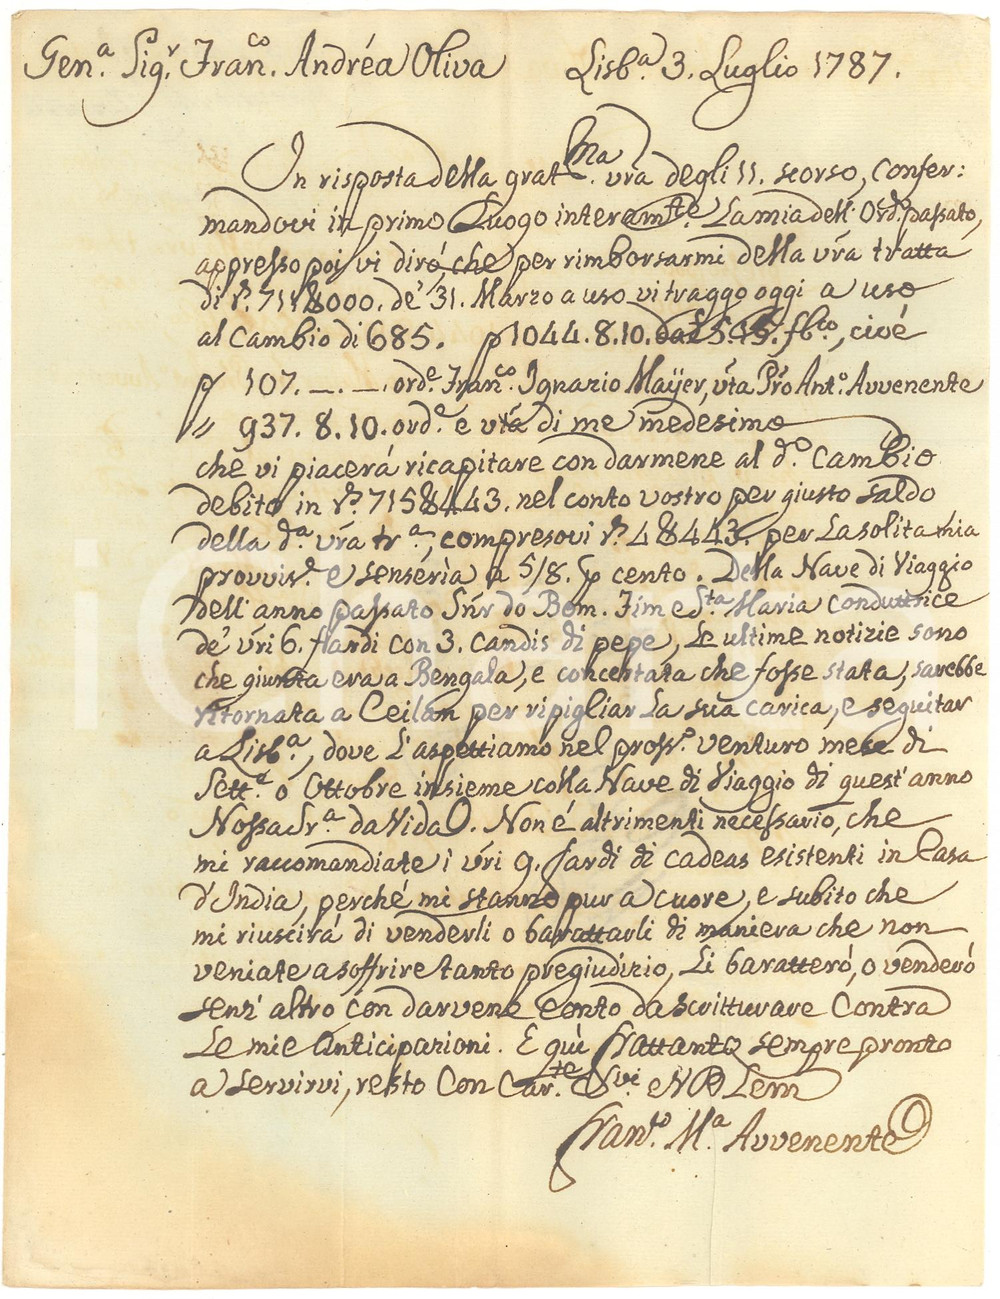 Gen.ª Sig.r Fran.co Andréa Oliva Lisb.ª 3. Luglio 1787.
In risposta della grat.ma vr̃a degli 11. scorso, Confer:
mandovi in primo Luogo interam.te La mia dell' Ord.º passato,
appresso poi vi diró, che per rimborsarmi della vr̃a tratta
di r.s 711&000. de' 31. Marzo a uso vi traggo oggi a uso
al Cambio di 685. p 1044.8.10. f.bco, cioé
p 107. _._. ord.e Fran.co Ignazio Maÿer, vr̃a Pr̃o Ant.º Avvenente
" 937.8.10. ord.e e vr̃a di me medesimo
che vi piacerá ricapitare con darmene al d.º Cambio
debito in r.s 715&443. nel conto vostro per giusto saldo
della d.ª vr̃a tr.ª, compresovi r.s 4&443. per La solita mia
provvis.e e senseria a 5/8. p cento. Della Nave di Viaggio
dell' anno passato Sñr do Bom. Fim e S.ta Maria conduttrice
de' vr̃i 6. fardi con 3. candis di pepe, Le ultime notizie sono
che giunta era a Bengala, e concertata che fosse stata, sarebbe
ritornata a Ceilán per ripigliar La sua carica, e seguitar
a Lisb.ª, dove L'aspettiamo nel pross.º venturo mese di
Sett.e o Ottobre insieme colla Nave di Viaggio di quest'anno
Nossa Sr.ª da Vida. Non é altrimenti necessario, che
mi raccomandiate i vr̃i 9. fardi di cadeas esistenti in Casa
d'India, perché mi stanno pur a cuore, e subito che
mi riuscirá di venderli o barattarli di maniera che non
veniate a soffrire tanto pregiudizio, Li baratteró, o venderó
senz' altro con darvene Conto da scritturare Contra
Le mie Anticipazioni. E quì frattanto sempre pronto
a servirvi, resto Con Car.te
Fran.co M.ª Avvenente